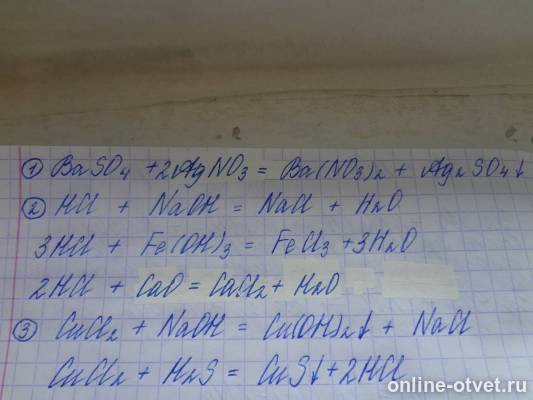 ① BaSO₄ + 2AgNO₃ = Ba(NO₃)₂ + Ag₂SO₄↓
② HCl + NaOH = NaCl + H₂O
3HCl + Fe(OH)₃ = FeCl₃ + 3H₂O
2HCl + CaO = CaCl₂ + H₂O
③ CuCl₂ + NaOH = Cu(OH)₂↓ + NaCl
CuCl₂ + H₂S = CuS↓ + 2HCl
online-otvet.ru